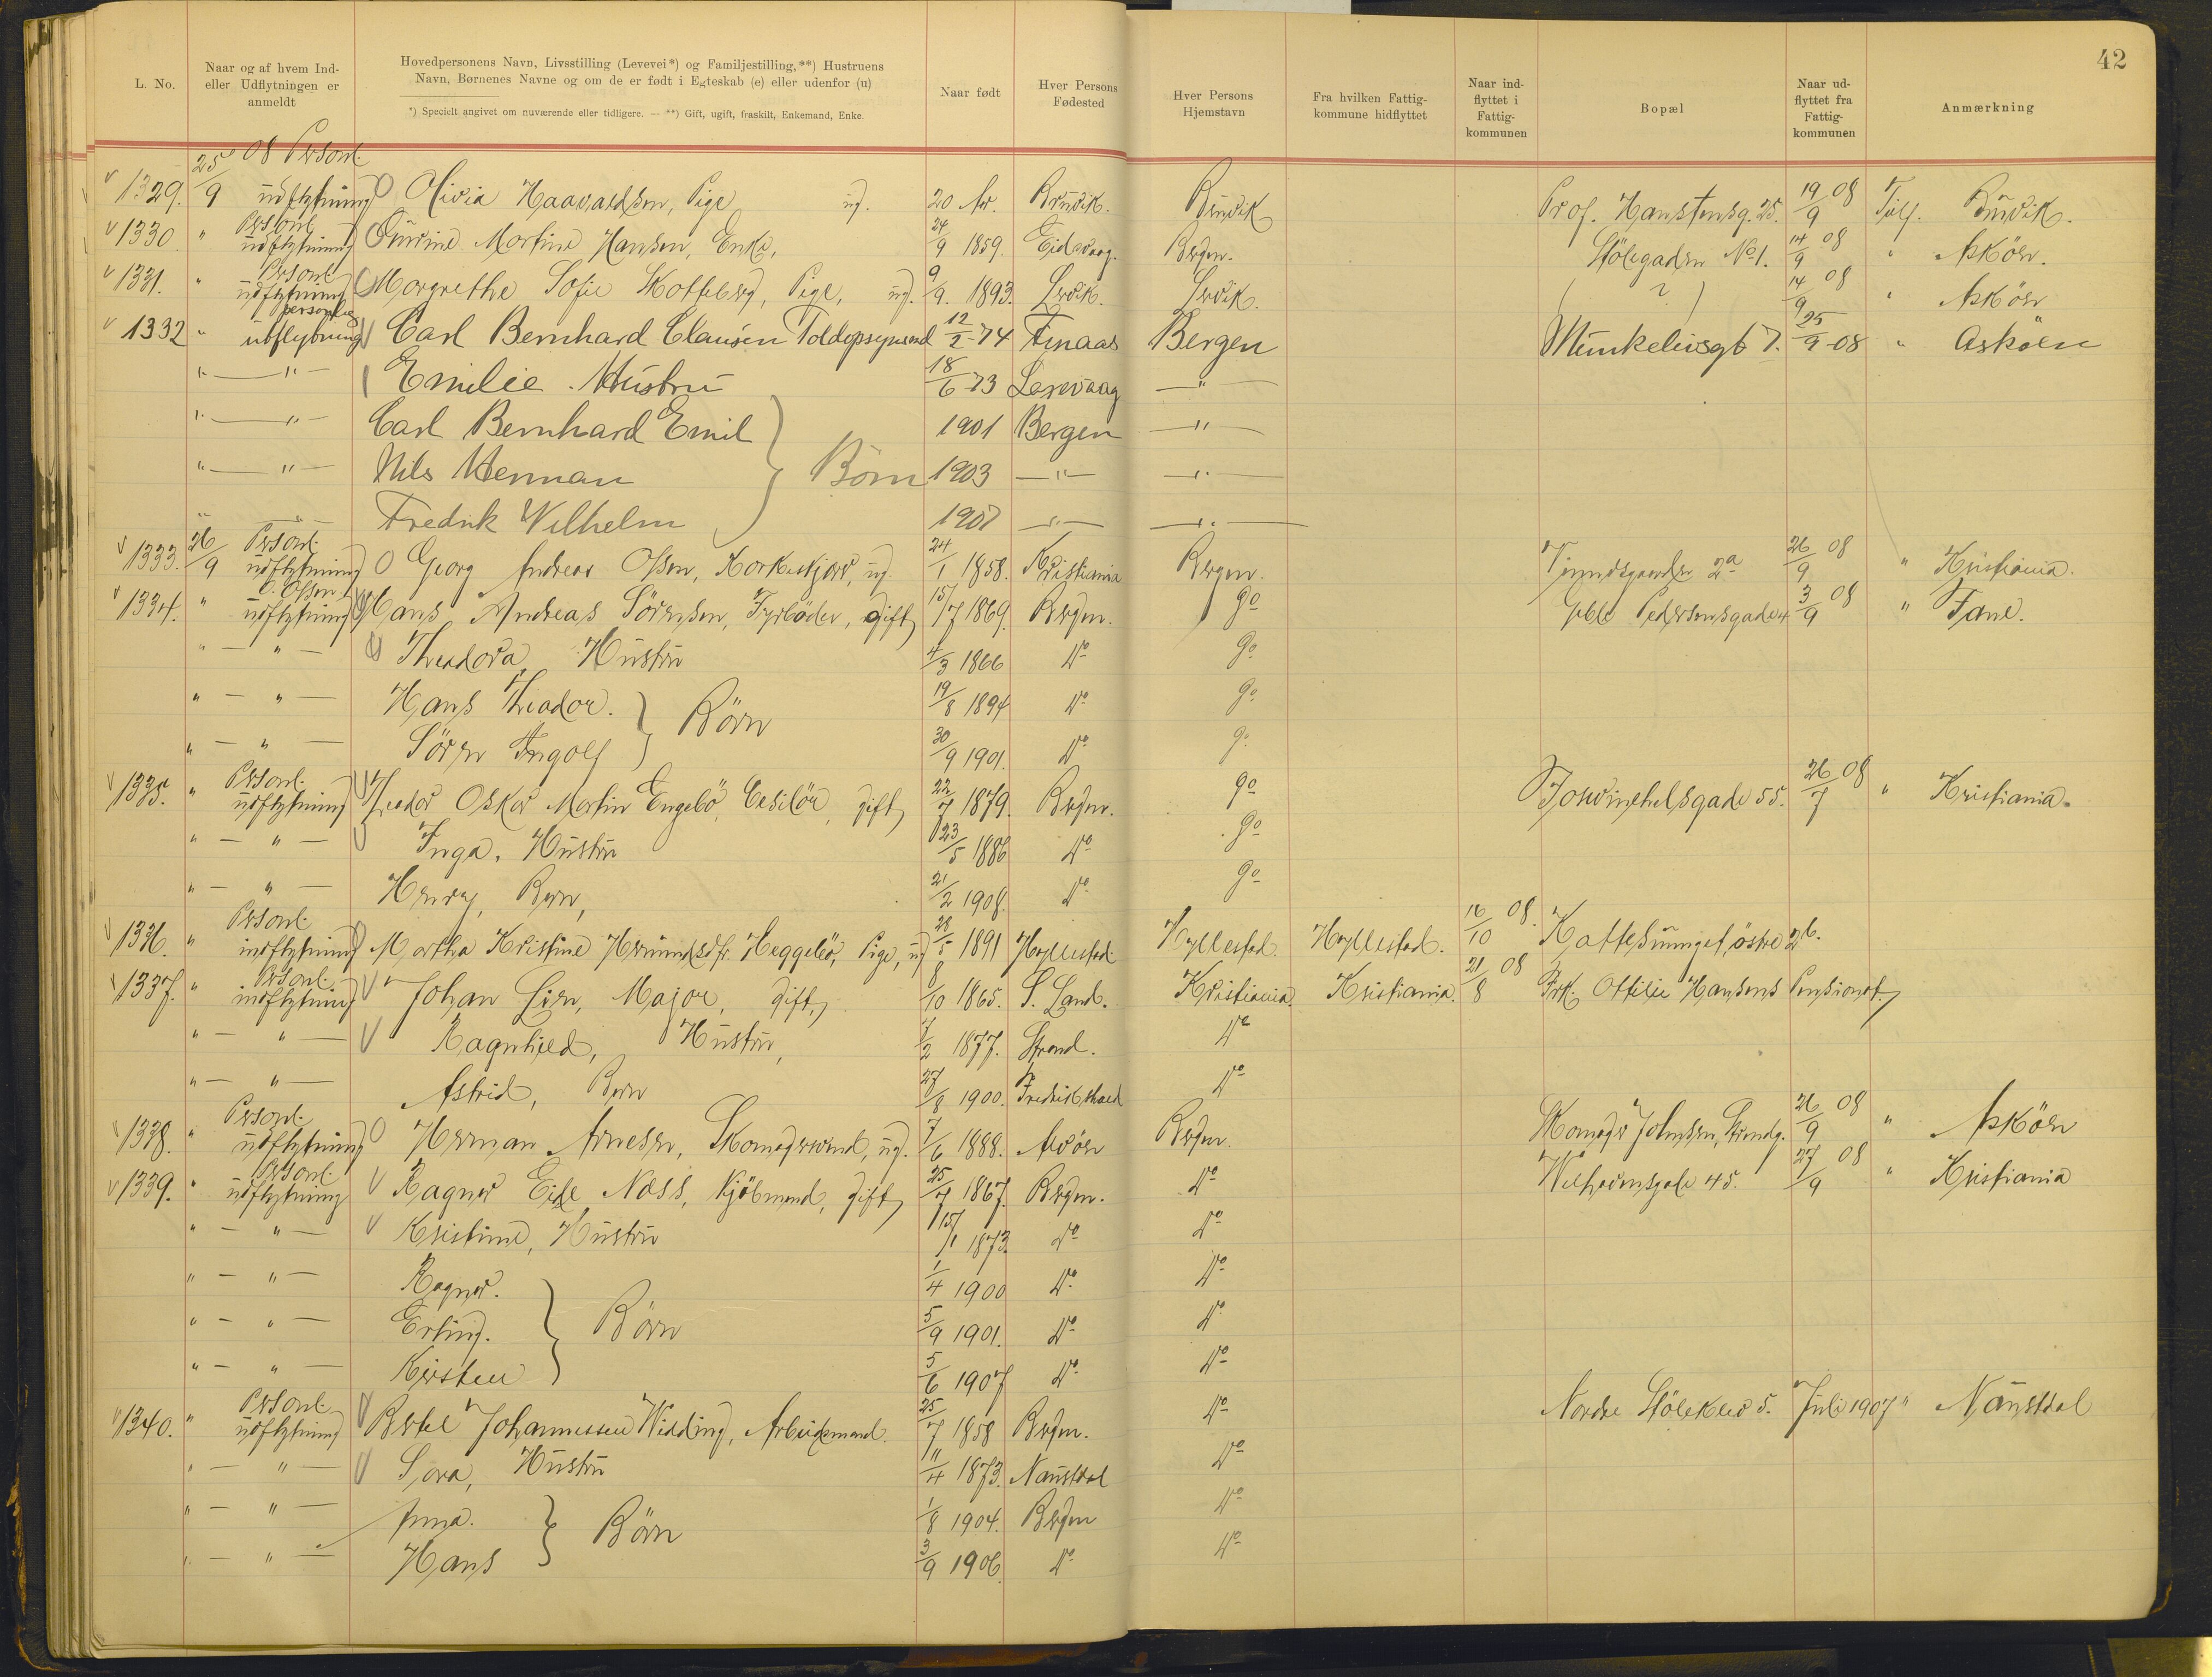 42
L. No.
Naar og af hvem Ind-
eller Udflytningen er
anmeldt
Hovedpersonens Navn, Livsstilling (Levevei*) og Familjestilling,**) Hustruens
Navn, Børnenes Navne og om de er født i Egteskab (e) eller udenfor (u)
*) Specielt angivet om nuværende eller tidligere. — **) Gift, ugift, fraskilt, Enkemand, Enke.
Naar født
Hver Persons
Fødested
Hver Persons
Hjemstavn
Fra hvilken Fattig-
kommune hidflyttet
Naar ind-
flyttet i
Fattig-
kommunen
Bopæl
Naar ud-
flyttet fra
Fattig-
kommunen
Anmærkning
1329. 25/9 08 Personl. udflytning Olivia Haavaldsen, Pige ug. 20 Ar. Bruvik. Bruvik Prof. Hanstensg. 25. 19/9 08 Bruvik.
1330 " Personl. udflytning Martine Hansen, Enke, 24/9 1859. Eidsvaag. Bergen. Stölegaden No 1. 14/9 08 " Asköen.
1331. " Personl. udflytning Margrethe Sofie Kotteberg, Pige, ug. 9/9. 1893. Lervik. Lervik. ( ? ) 14/9 08 " Asköen
1332 " personlig utflytning Carl Bernhard Clausen Toldopsynsmd 12/2-74 Bergen Munkelivsgt 7. 25/9-08 " Asköen
" — " — Emilie. Hustru 18/6-73 Laxevaag — " —
" — " — Carl Bernhard Emil 1901 Bergen — " —
" — " — Nils Herman } Börn 1903 — " — — " —
" — Fredrik Wilhelm 1907 — " — — " —
1333. 26/9 Personl. udflytning Georg Andreas Olsen, ug. 24/1 1858. Kristiania Bergen. 2a 26/9 08 " Kristiania.
1334. " O. Olsen udflytning Hans Andreas Sörensen, Fyrböder, gift, 15/7 1869. Bergen. do Geble Pedersensgade 4 3/9 08 " Fane.
" — " — Theodora Hustru 4/3 1866 do do
" — " — Hans Theodor. } Börn 19/8 1894 do do
" — " — Sören Ingolf 30/9 1901. do do
1335. " Personl. udflytning Theodor Oskar Martin Engebö, Ciselör, gift, 22/7 1879. Bergen. do 55. 26/7 08 " Kristiania.
" — " — Inga, Hustru 23/5 1886 do do
" — " — Henry, Barn, 21/2 1908. do do
1336. " Personl. indflytning Martha Kristine Hermundsdtr. Heggebö, Pige, ug 28/5 1891 Hyllestad. Hyllestad. Hyllestad. 16/10 08. Kattesmuget, östre 26.
1337. " Personl. indflytning Johan Lien, Major, gift, 8/10 1865. S. Land. Kristiania. Kristiania. 21/8 08 Frk. Ottilie Hansens Pensionat.
" — " — Ragnhild, Hustru, 7/2 1877. Strand. do
" — " — Astrid, Barn 27/8 1900. Fredrikshald do
1338. " Personl. udflytning Herman Arnesen, Skomagersvend, ug. 7/6 1888. Alvöen Bergen. Skomager Johnsen, Strandg. 26/9 08 " Asköen
1339. " Personl. udflytning Ragnar Eide Næss, Kjöbmand, gift, 25/7 1867. Bergen. do 45. 27/9 08 " Kristiania
" — " — Kristine, Hustru 15/1 1873. do do
" — " — Ragnar. 1/4 1900 do do
" — " — Erling. } Börn 5/9 1901. do do
" — " — Kirsten 5/6 1907 do do
1340. " Personl. udflytning Bertel Johannessen Widding, Arbeidsmand. 25/7 1858 Bergen. do Nordre Stölekleo 5. Juli 1907 " Naustdal
" — " — Sara, Hustru 11/4 1873. Naustdal do
" — " — Anna. } Börn 1/8 1904. Bergen do
" — " — Hans 3/9 1906. do do